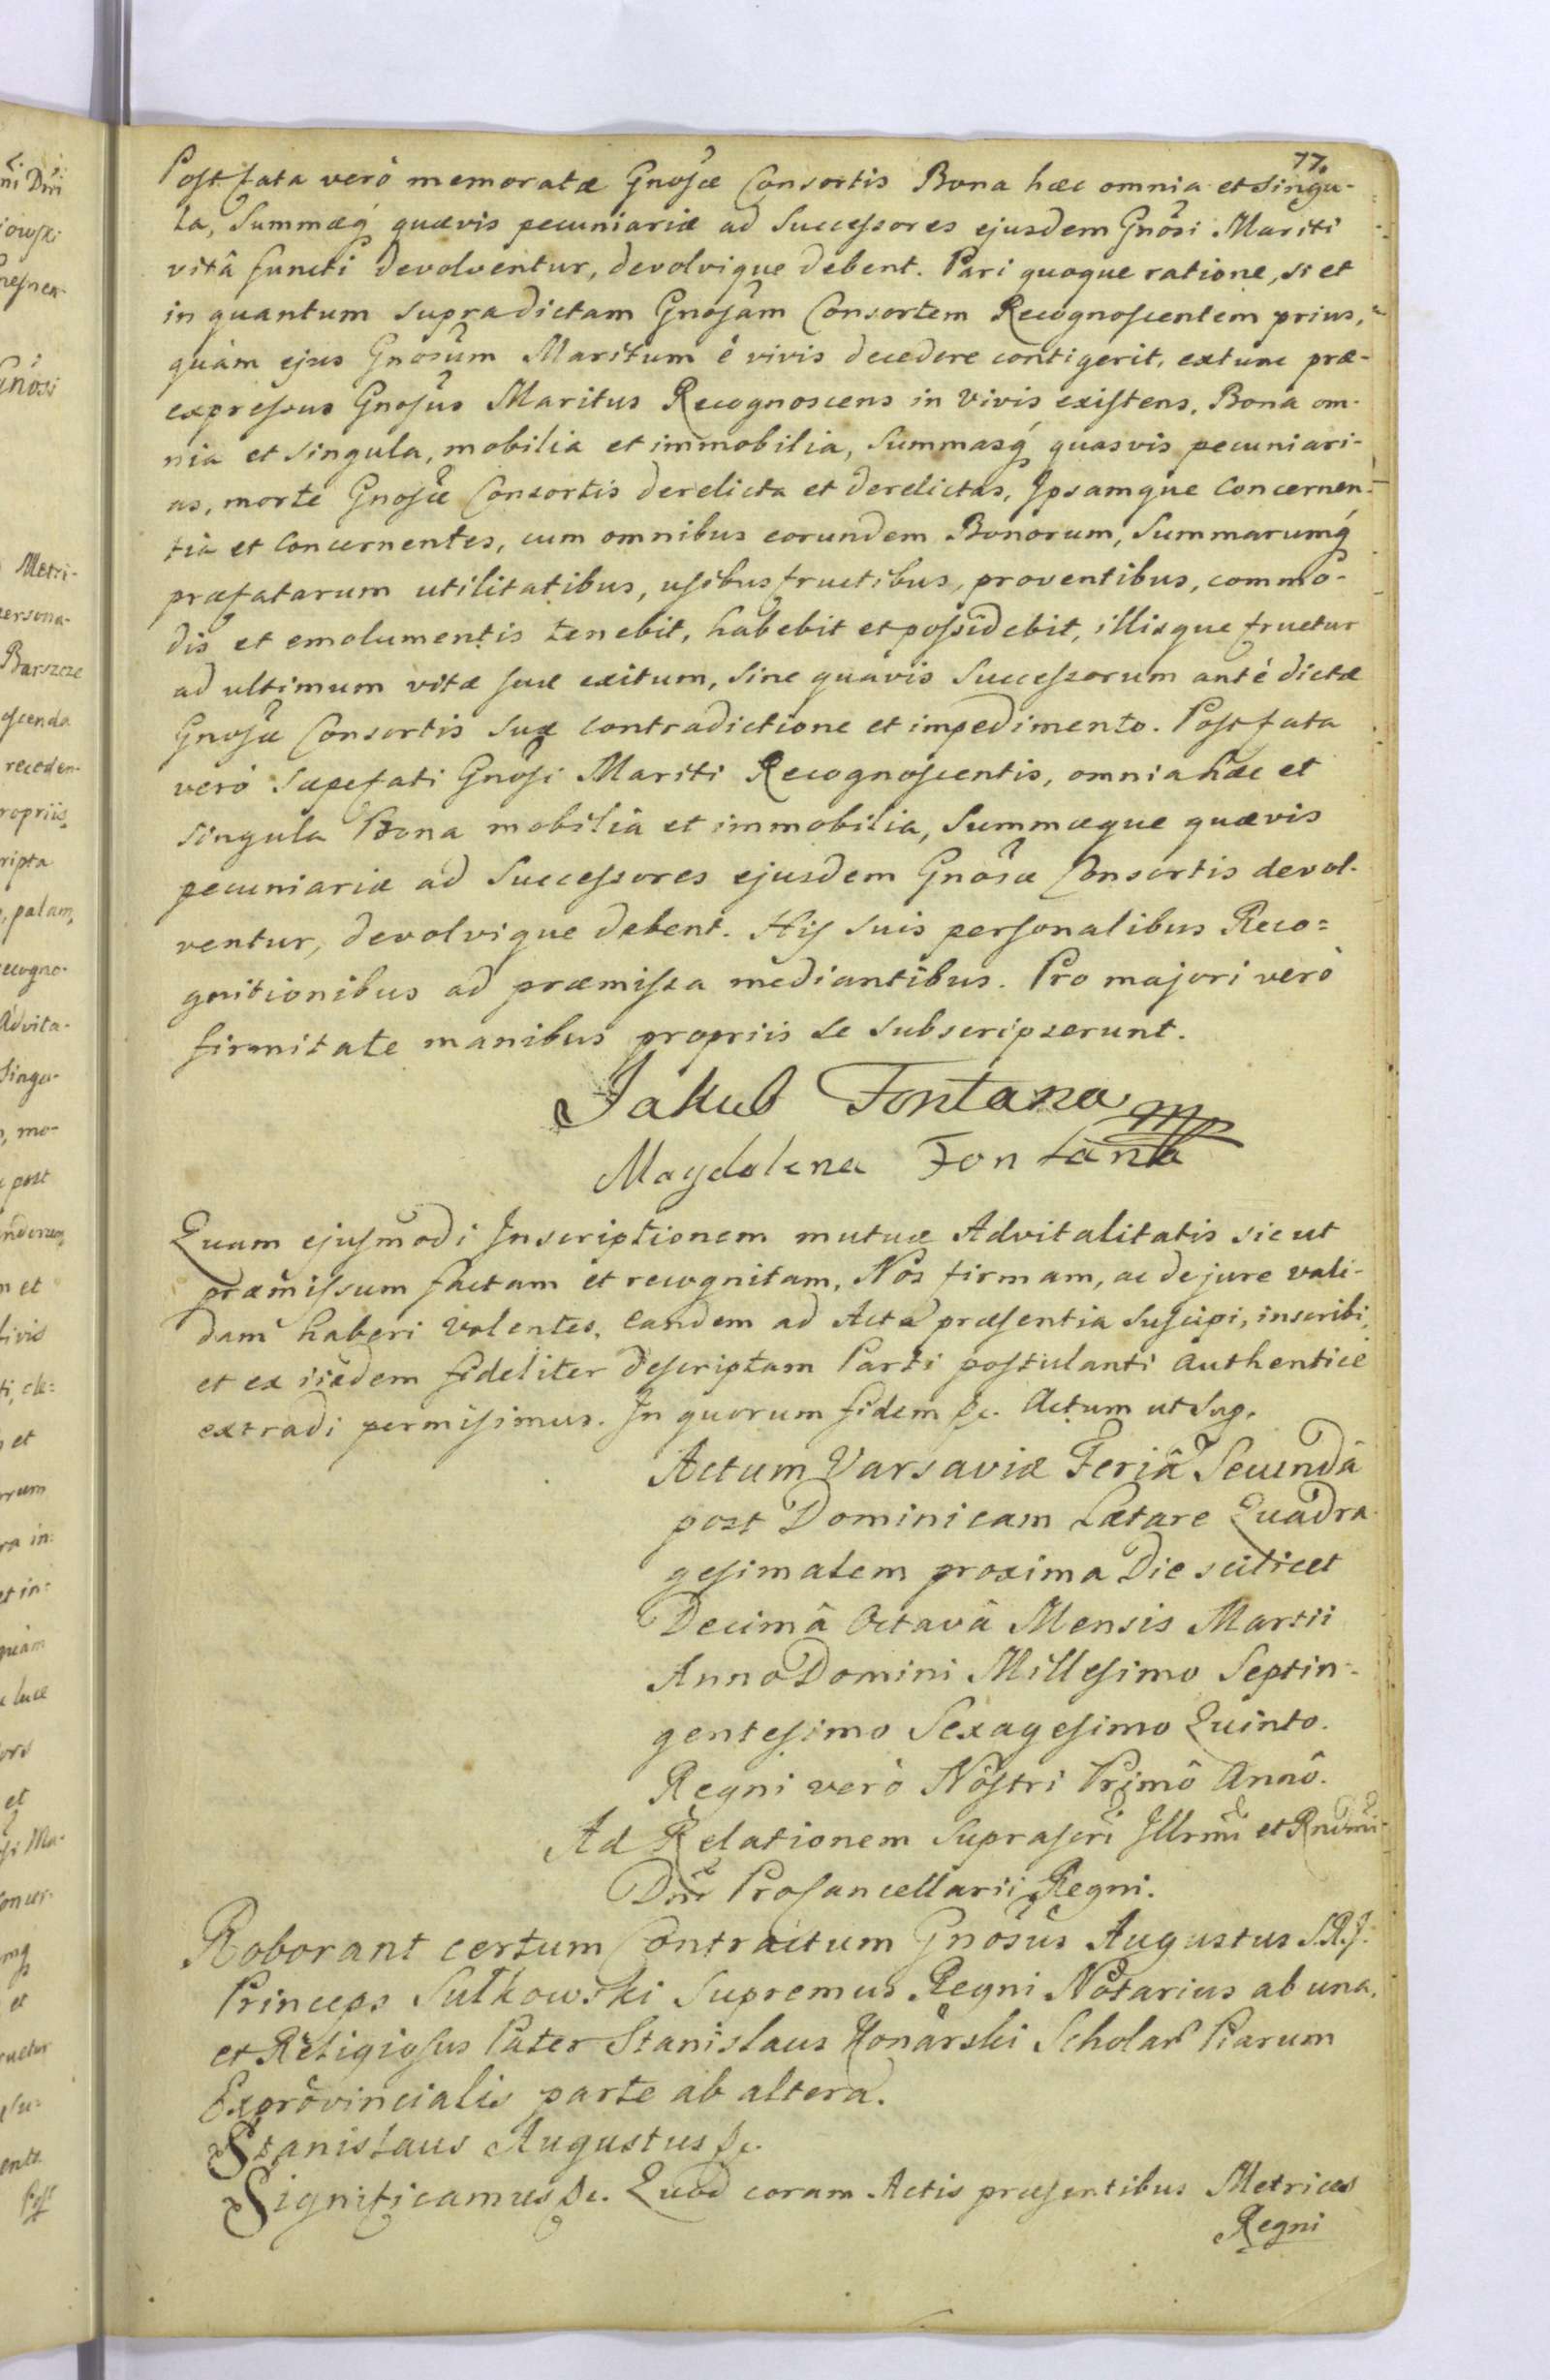 77.
Post fata verò memoratæ Gnosæ Consortis Bona hæc omnia et singu-
la, Summæq́ quævis pecuniariæ ad Successores ejusdem Gnosi Mariti
vitâ functi devolventur, devolvique debent. Pari quoque ratione, si et
in quantum supradictam Gnosam Consortem Recognoscentem prius,
quàm ejus Gnosum Maritum è vivis decedere contigerit, extunc præ-
expressus Gnosus Maritus Recognoscens in vivis existens, Bona om-
nia et singula, mobilia et immobilia, Summasq́ quasvis pecuniari-
as, morte Gnosæ Consortis derelicta et derelictas, Ipsamque concernen-
tia et concernentes, cum omnibus eorundem Bonorum, Summarumq́
præfatarum utilitatibus, usibusfructibus, proventibus, commo-
dis et emolumentis tenebit, habebit et possidebit, illisque fruetur
ad ultimum vitæ suæ exitum, sine quavis Successorum antè dictæ
Gnosæ Consortis suæ contradictione et impedimento. Post fata
verò sæpefati Gnosi Mariti Recognoscentis, omnia hæc et
singula Bona mobilia et immobilia, Summæque quævis
pecuniariæ ad Successores ejusdem Gnosæ Consortis devol-
ventur, devolvique debent. His suis personalibus Reco=
gnitionibus ad præmissa mediantibus. Pro majori verò
firmitate manibus propriis se subscripserunt.
Jakub Fontana mp
Magdalena Fontana
Quam ejusmodi Inscriptionem mutuæ Advitalitatis sicut
præmissum factam et recognitam, Nos firmam, ac de jure vali-
dam haberi volentes, eandem ad Acta præsentia suscipi, inscribi,
et ex iisdem fideliter descriptam Parti postulanti authentice
extradi permisimus. In quorum fidem &c. Actum ut sup.
Actum Varsaviæ Feriâ Secundâ
post Dominicam Lætare Quadra
gesimalem proxima Die scilicet
Decimâ Octavâ Mensis Martii
Anno Domini Millesimo Septin-
gentesimo Sexagesimo Quinto.
Regni verò Nostri Primô Annô.
Ad Relationem suprascri Illrmi et Rndmi
Dni Procancellarii Regni.
Roborant certum Contractum Gnosus Augustus S.R.J.
Princeps Sułkowski Supremus Regni Notarius ab una,
et Religiosus Pater Stanislaus Konarski Scholar Piarum
Exprovincialis parte ab altera.
Stanislaus Augustus &c.
Significamus &c. Quod coram Actis præsentibus Metrices
Regni